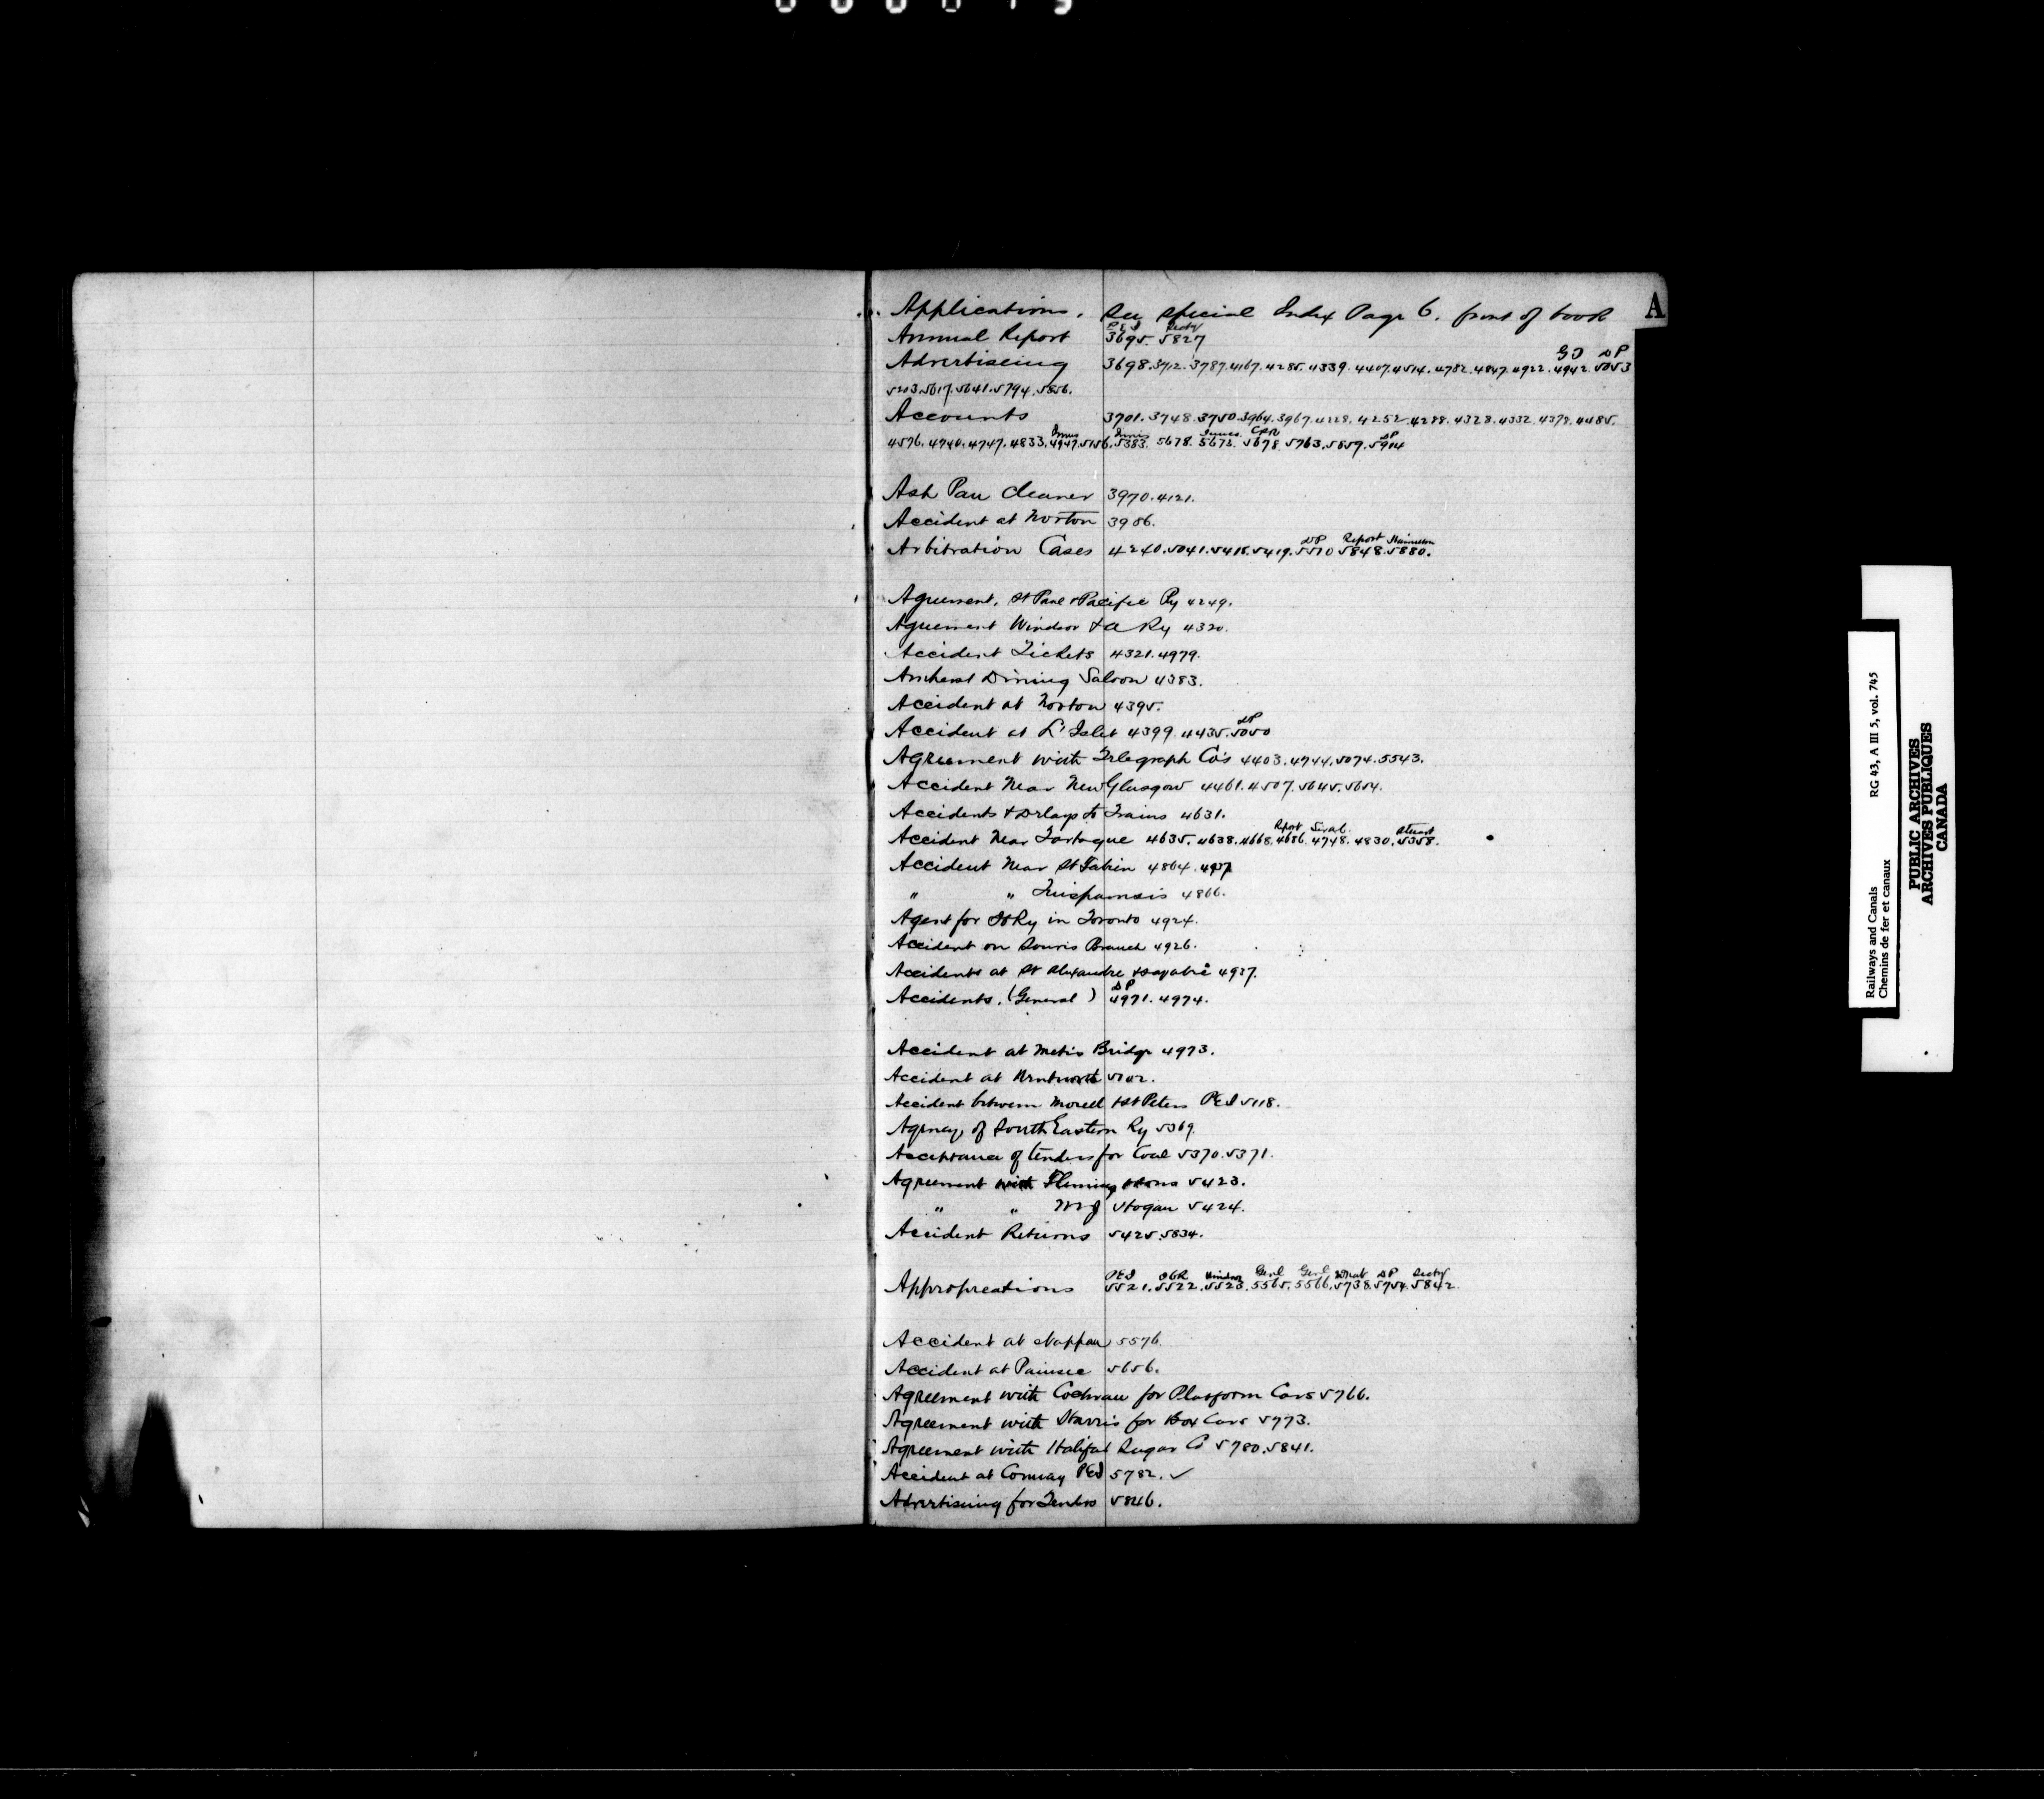 A
Applications. See special Index Page 6. front of book
PEI Secty
Annual Report 3695. 5827
GT DP
Advertiseing 3698. 3712. 3787. 4167. 4285. 4339. 4407. 4514. 4782. 4847. 4922. 4942. 5053
5203. 5617. 5641. 5794. 5856.
Accounts 3701. 3748. 3750. 3964. 3967. 4228. 4252. 4288. 4328. 4332. 4378. 4485.
Innes Innes Innes CPR DP
4576. 4740. 4747. 4833. 4947. 5156. 5383. 5678. 5672. 5678. 5763. 5859. 5904
Ash Pan Cleaner 3970. 4121.
Accident at Norton 3986.
DP Report
Arbitration Cases 4240. 5041. 5418. 5419. 5510 5848. 5880.
Agreement, St Paul & Pacific Ry 4249.
Agreement Windsor & A Ry 4320.
Accident Tickets 4321. 4979.
Amherst Dining Saloon 4383.
Accident at Norton 4395.
DP
Accident at L'Islet 4399. 4435. 5050
Agreement with Telegraph Co's 4403. 4744. 5074. 5543.
Accident Near New Glasgow 4461. 4507. 5645. 5654.
Accidents & Delays to Trains 4631.
Report Stewart
Accident Near Tartague 4635. 4638. 4668. 4686. 4748. 4830. 5358.
Accident Near St Fabien 4864. 4937
" " Quispamsis 4866.
Agent for Ry in Toronto 4924.
Accident on Souris Branch 4926.
Accidents at St Alexandre & Sayabec 4937.
DP
Accidents. (General) 4971. 4974.
Accident at Metis Bridge 4973.
Accident at Wentworth 5102.
Accident between Morell & St Peters PEI 5118.
Agency of South Eastern Ry 5369.
Acceptance of tenders for Coal 5370. 5371.
Agreement with Fleming & Sons 5423.
" " Hogan 5424.
Accident Returns 5425. 5834.
PEI ICR Windsor Genl Genl DP Secty
Appropreations 5521. 5522. 5523. 5565. 5566. 5738. 5754. 5842.
Accident at Nappan 5576.
Accident at Painsec 5656.
Agreement with Cochrane for Platform Cars 5766.
Agreement with Harris for Box Cars 5773.
Agreement with Halifax Sugar Co 5780. 5841.
Accident at Conway PEI 5782. ✓
Advertiseing for Tenders 5846.
Railways and Canals RG 43, A III 5, vol. 745
Chemins de fer et canaux
PUBLIC ARCHIVES
ARCHIVES PUBLIQUES
CANADA